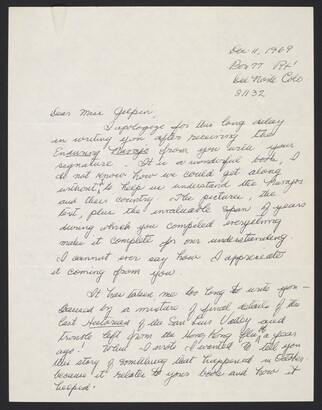 Dec 11, 1969
Box 77 Rt 1
Del Norte Colo
81132
Dear Miss Gilpin,
I apologize for this long delay
in writing you after receiving the
Enduring Navajo from you with your
signature. It is a wonderful book, I
do not know how we could get along
without it to help us understand the Navajos
and their country. The pictures, the
text, plus the invaluable span of years
during which you compiled everything
make it complete for our understanding.
I cannot ever say how I appreciate
it coming from you
It has taken me too long to write you—
caused by a mixture of final details of the
last of the San Luis Valley and
trouble left from the Hong Kong flu of a year
ago. When I wrote I wanted to tell you
this story of something that happened in October
because it relates to your book and how it
helped.